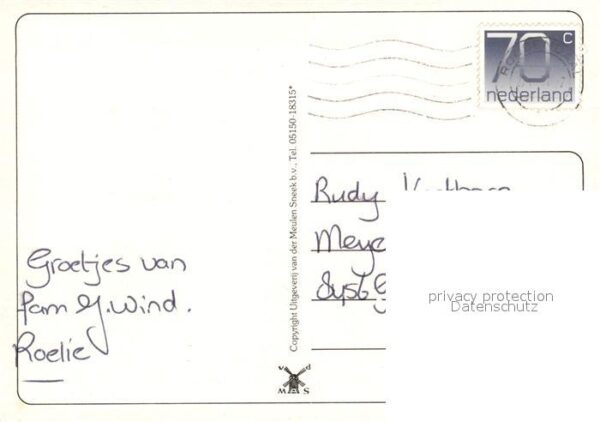 70 c
nederland
Copyright Uitgeverij van der Meulen Sneek b.v., Tel. 05150-18315*
Rudy
Meye
privacy protection
Datenschutz
Groetjes van
fam G. Wind.
Roelie
v d
M S